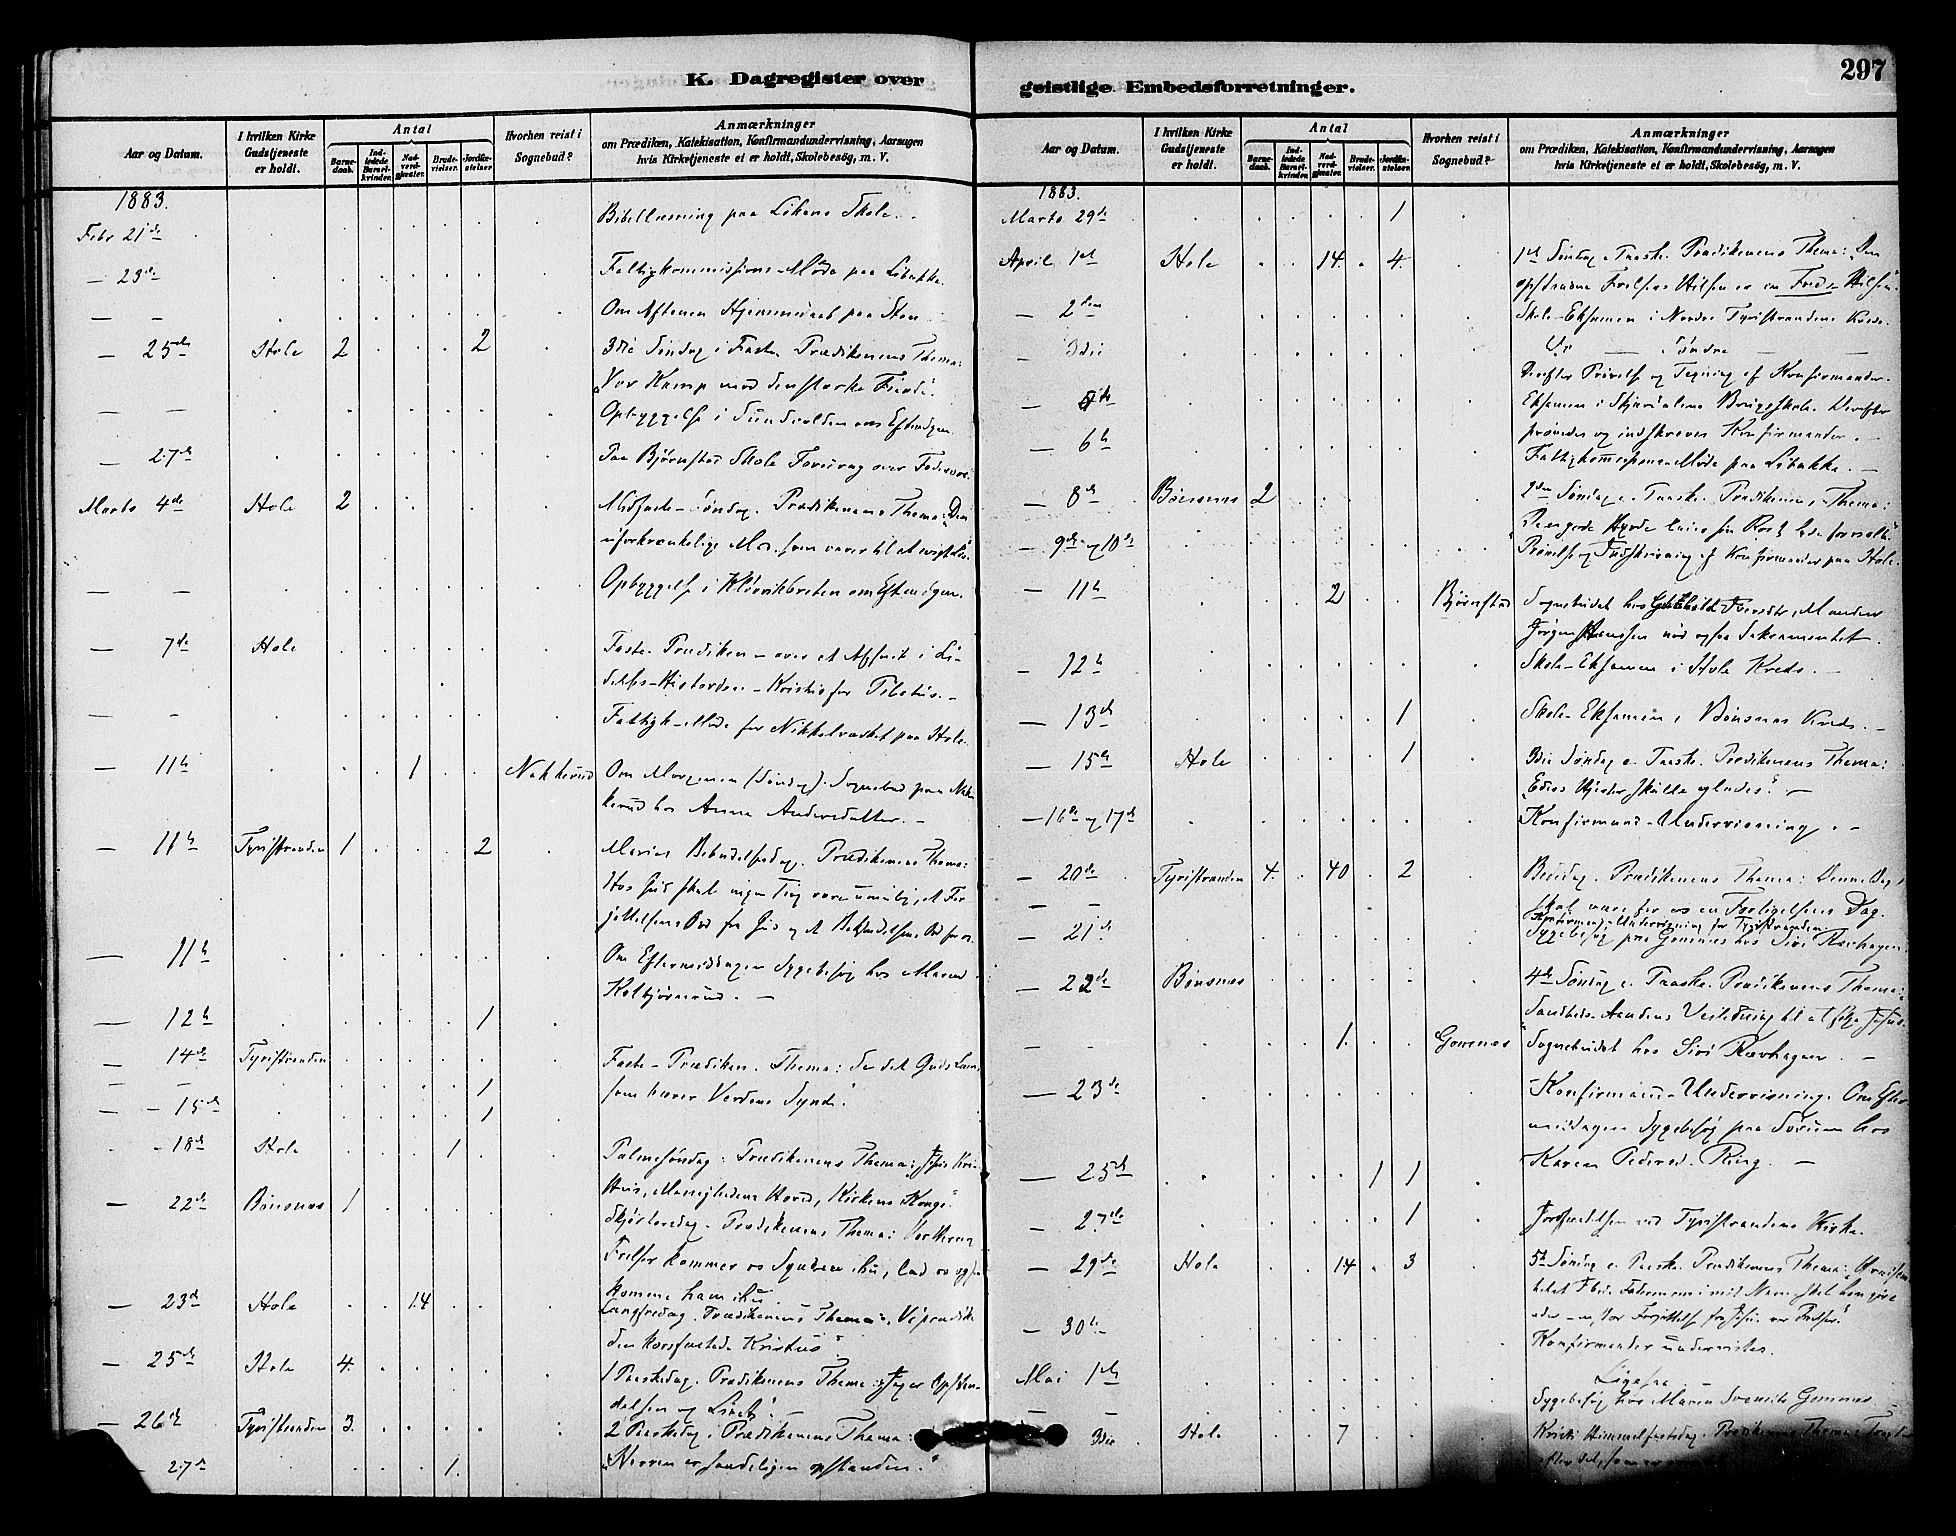 K. Dagregister over
geistlige Embedsforretninger.
297
Aar og Datum.
I hvilken Kirke Gudstjeneste er holdt.
Antal
Barnedaab.
Indledede Barselkvinder.
Nadverdgjæster.
Brudevielser.
Jordfæstelser
Hvorhen reist i Sognebud?
Anmærkninger
om Prædiken, Katekisation, Konfirmandundervisning, Aarsagen
hvis Kirketjeneste et er holdt, Skolebesög, m. V.
1883.
Febr 21de Bibellæsning paa Skole.
— 23de Fattigkommissions-Møde paa Libakke.
— — Om Aftenen paa Sten
— 25de Hole 2 2 3die Søndag i Faste. Prædikenens Thema:
"Vor Kamp mod den stærke Fiende".
— — Opbyggelse i Sundvolden om Eftmdgen.
— 27de Paa Bjørnstad Skole Foredrag over
Marts 4de Hole 2 Midfaste-Søndag. Prædikenens Thema: "Den
uforkrænkelige Mad som varer til et evigt Liv".
— — Opbyggelse i om Eftmdgen.
— 7de Hole Faste-Prædiken over et Afsnit i Li-
delses-Historien - Kristus for Pilatus.
— - Fattigk.-Møde for Nikkelværket paa Hole.
— 11te 1 Nakkerud Om Morgenen (Søndag). Sognebud paa Nak-
kerud hos Anna Andersdatter.
— 11te Tyristranden 1 2 Mariæ Bebudelsesdag. Prædikenens Thema:
Hos Gud skal ingen Ting være umulig, et For-
jættelsens Ord fra Gud og et Bekjendelsens Ord for os.
— 11te Om Eftermiddagen Sygebesøg hos Maren
Kolbjørnrud.
— 12te 1
14de Tyristranden Faste-Prædiken. Thema: Se det Guds Lam,
— — 1 som bærer Verdens Synd".
— - 15de 1
- 18de Hole 1 Palmesøndag. Prædikenens Thema: Jesus Kri-
stus, Menighedens Hoved, Kirkens Konge".
— 22de Bønsnes 1 Skjærtorsdag. Prædikenens Thema: Vor Herre
Frelser kommer os Syndere ihu, lad os ogsaa
komme ham ihu
— 23de Hole 14 Langfredag. Prædikenens Thema: Vi prædike
den korsfæstede Kristus".
— 25de Hole 4. 1 Paaskedag. Prædikenens Thema: "Jeg er Opstan-
delsen og Livet".
— 26de Tyristranden 3. 2 Paaskedag. Prædikenens Thema:
- 27de 1. "Herren er sandeligen opstanden."
Aar og Datum.
I hvilken Kirke Gudstjeneste er holdt.
Antal
Barnedaab.
Indledede Barselkvinder.
Nadverdgjæster.
Brudevielser.
Jordfæstelser.
Hvorhen reist i Sognebud?
Anmærkninger
om Prædiken, Katekisation, Konfirmandundervisning, Aarsagen
hvis Kirketjeneste et er holdt, Skolebesög, m. V.
1883.
Marts 29de 1
April 1ste Hole 14. 4. 1ste Søndag e. Paaske. Prædikenens Thema: Den
opstandne Frelsers Hilsen er en Freds-Hilsen.
— 2den Skole-Eksamen i Nordre Tyristrandens Kreds.
— 3die — Søndre — —
Derefter Prøvelse og Tegning af Konfirmander.
— 5te Eksamen i Skjærdalens Brugsskole. Derefter
prøvedes og indskreves Konfirmander.
— 6te Fattigkommissions-Møde paa Libakke.
— 8de Bønsnes 2 2den Søndag e. Paaske. Prædikenens Thema:
"Den gode Hyrde
— 9de og 10de Prøvelse og Indskrivning af Konfirmander paa Hole.
— 11te 2 Bjørnstad Sognebudet hos
Jørgen nød ogsaa Sakramentet.
— 12te Skole-Eksamen i Hole Kreds.
— 13de 1 Skole-Eksamen i Bønsnes Kreds.
— 15de Hole 1 3die Søndag e. Paaske. Prædikenens Thema:
"Eders Hjerter skulle glædes".
— 16de og 17de Konfirmand-Undervisning.
— 20de Tyristranden 4. 40 2 Bededag. Prædikenens Thema: Denne Dag
— — skal være for os en Dag.
Konfirmand-Undervisning for Tyristranden
— 21de Sygebesøg paa Gomnes hos Siri Rævhagen.
— 22de Bønsnes 4de Søndag e. Paaske. Prædikenens Thema:
Sandheds-Aandens Veiledning til at følge Jesus.
- - 1. Gomnes Sognebudet hos Siri Rævhagen.
— 23de Konfirmand-Undervisning. Om Efter-
middagen Sygebesøg paa Sørum hos
Karen Pedersd. Ring.
— 25de 1 1
— 27de 1 Jordfæstelsen ved Tyristrandens Kirke.
— 29de Hole 14 3 5te Søndag e. Paaske. Prædikenens Thema:
— 30te
Konfirmander undervistes.
Mai 1ste Ligesaa.
— — Sygebesøg hos Maren Gomnes
3die Hole 7 Kristi Himmelfartsdag. Prædikenens Thema: